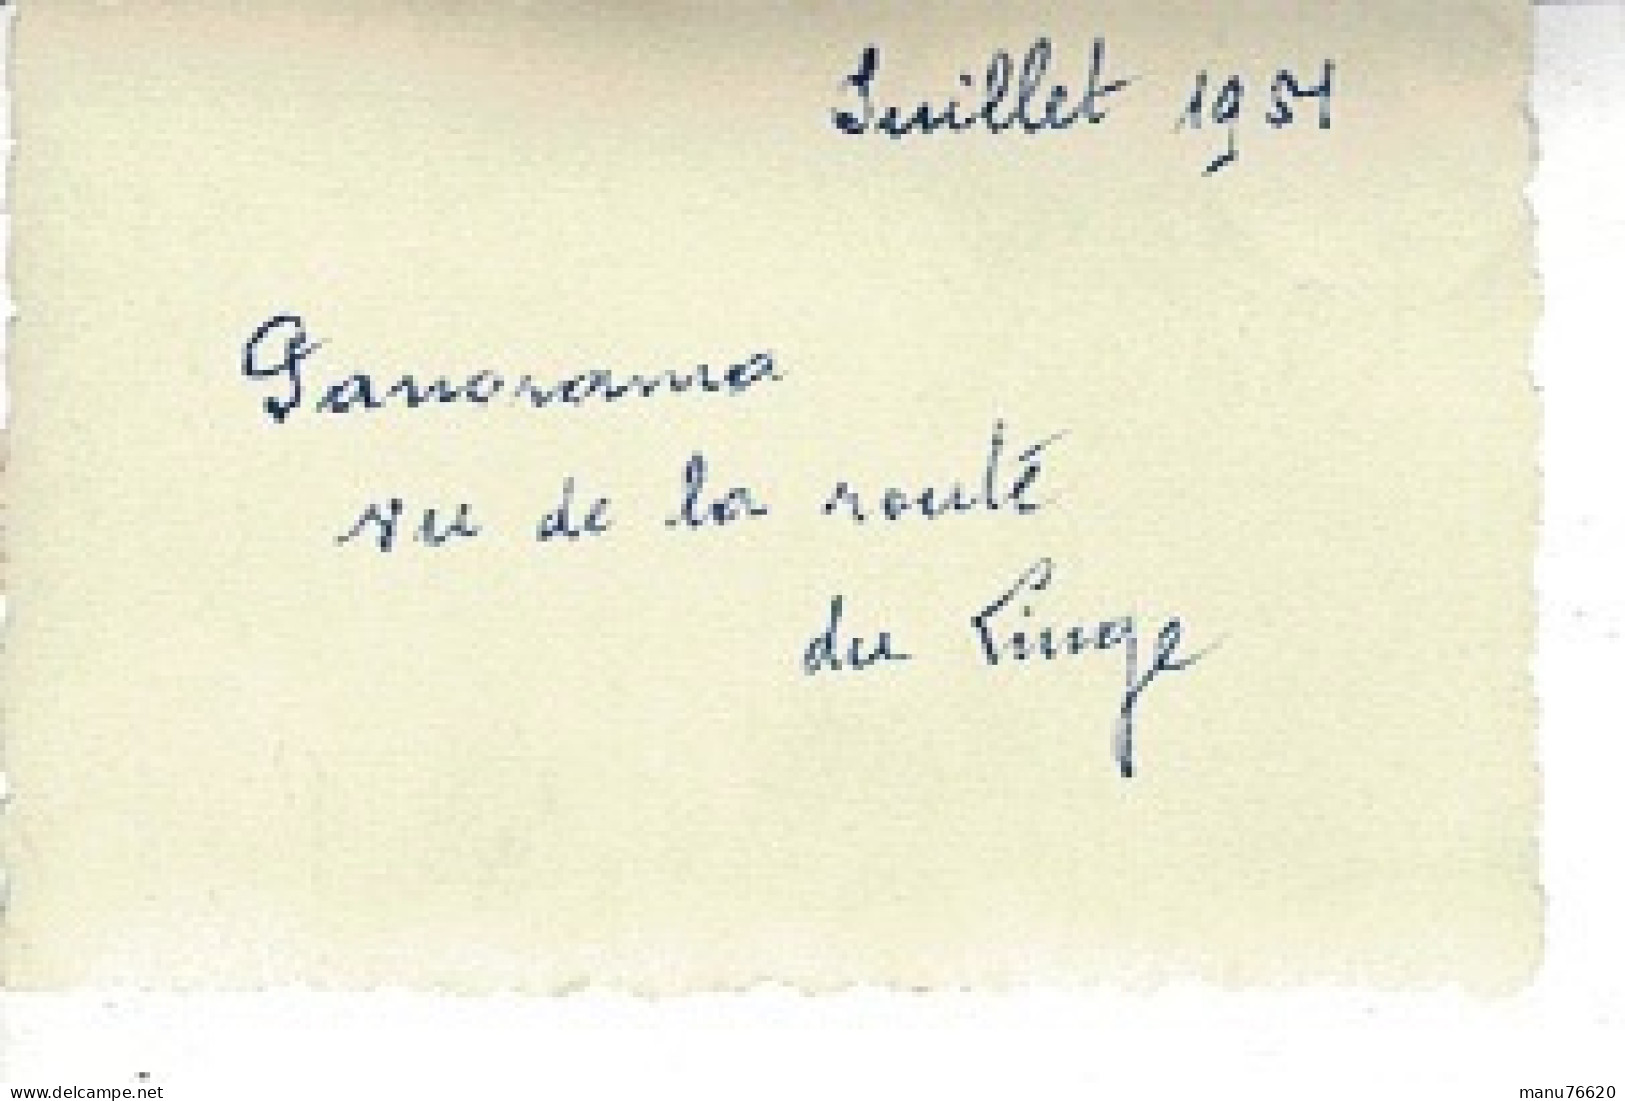 Juillet 1951
Panorama
vu de la route
du Linge
delcampe.net
manu76620